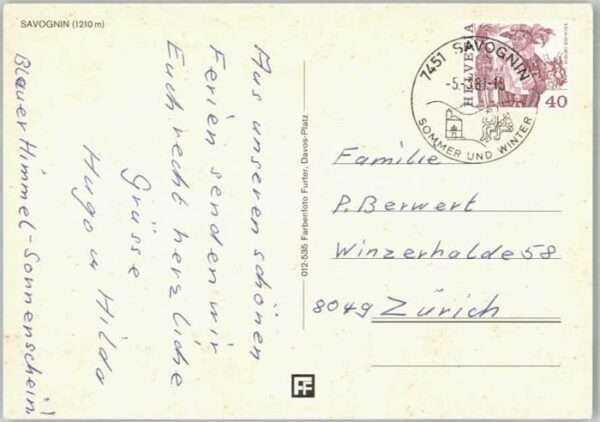 SAVOGNIN (1210 m)
Aus unseren schönen
Ferien senden wir
Euch recht herzliche
Grüsse
Hugo u Hilda
Blauer Himmel - Sonnenschein!
012-535 Farbenfoto Furter, Davos-Platz
7451 SAVOGNIN
SOMMER UND WINTER
HELVETIA
40
Familie
P. Berwert
Winzerhalde 58
8049 Zürich
FF